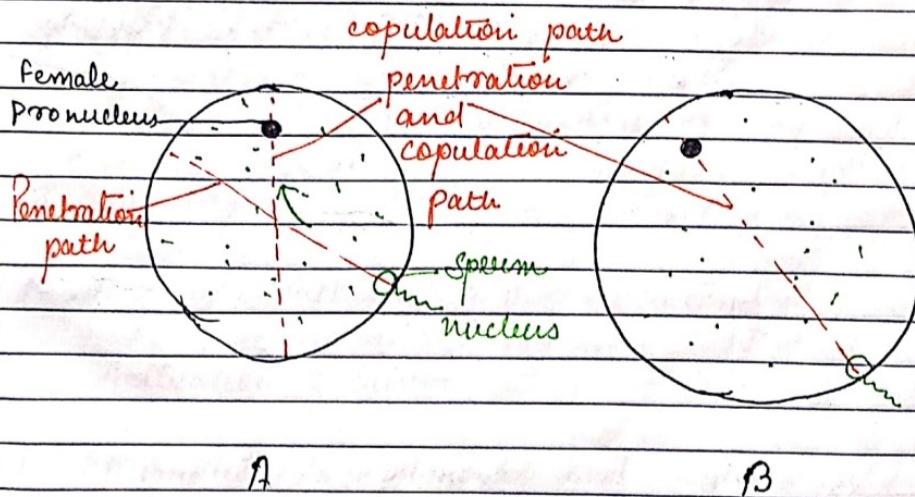 copulation path
female
pronucleus
penetration
and
copulation
path
Penetration
path
sperm
nucleus
A
B